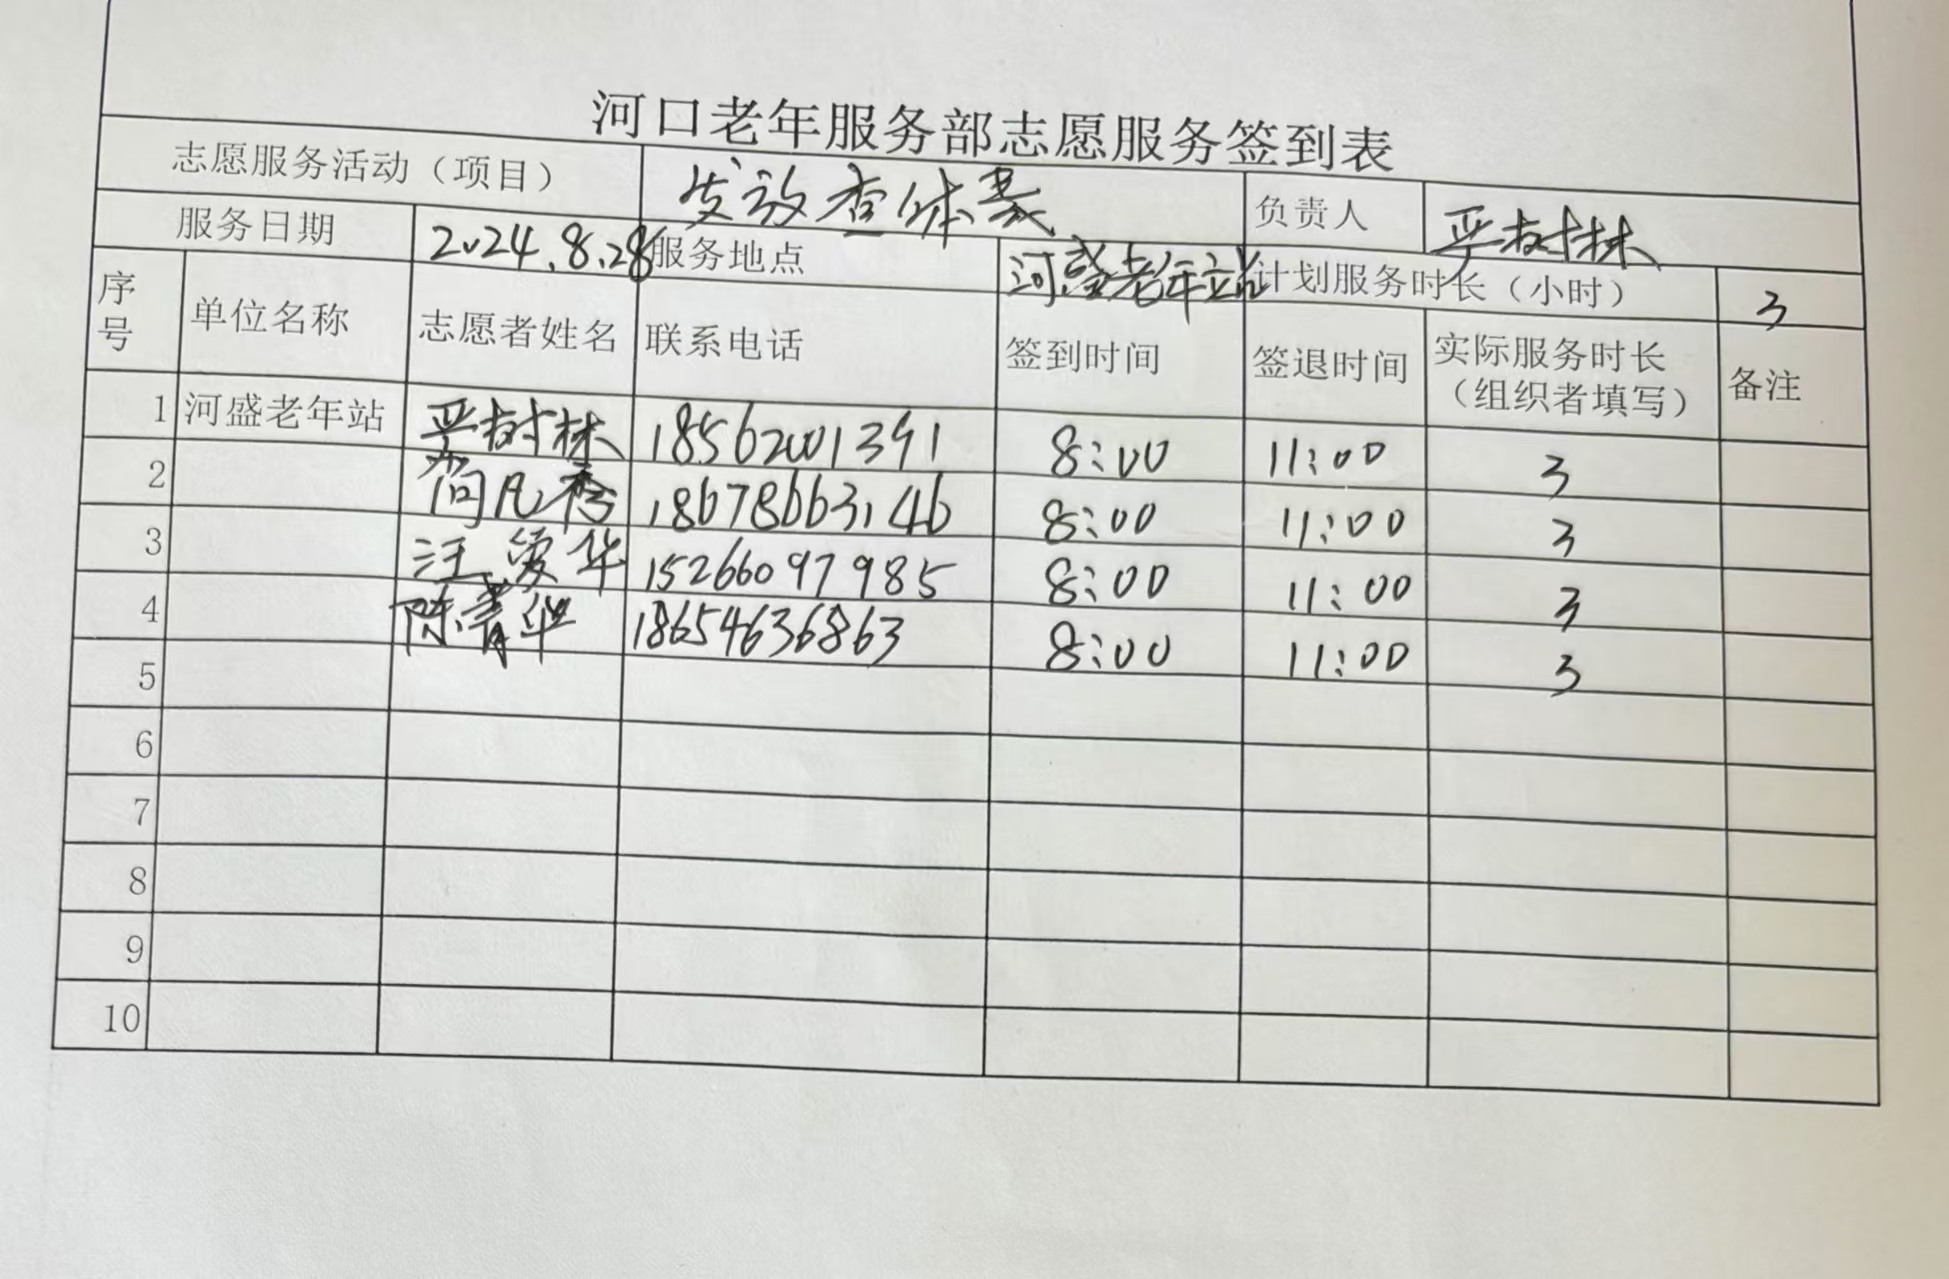 河口老年服务部志愿服务签到表
志愿服务活动（项目） 发放查体表 负责人 严树林
服务日期 2024.8.28 服务地点 河盛老年站 计划服务时长（小时） 3
序号 单位名称 志愿者姓名 联系电话 签到时间 签退时间 实际服务时长（组织者填写） 备注
1 河盛老年站 严树林 18562001391 8:00 11:00 3
2 18678663146 8:00 11:00 3
3 汪爱华 15266097985 8:00 11:00 3
4 陈青华 18654636863 8:00 11:00 3
5
6
7
8
9
10